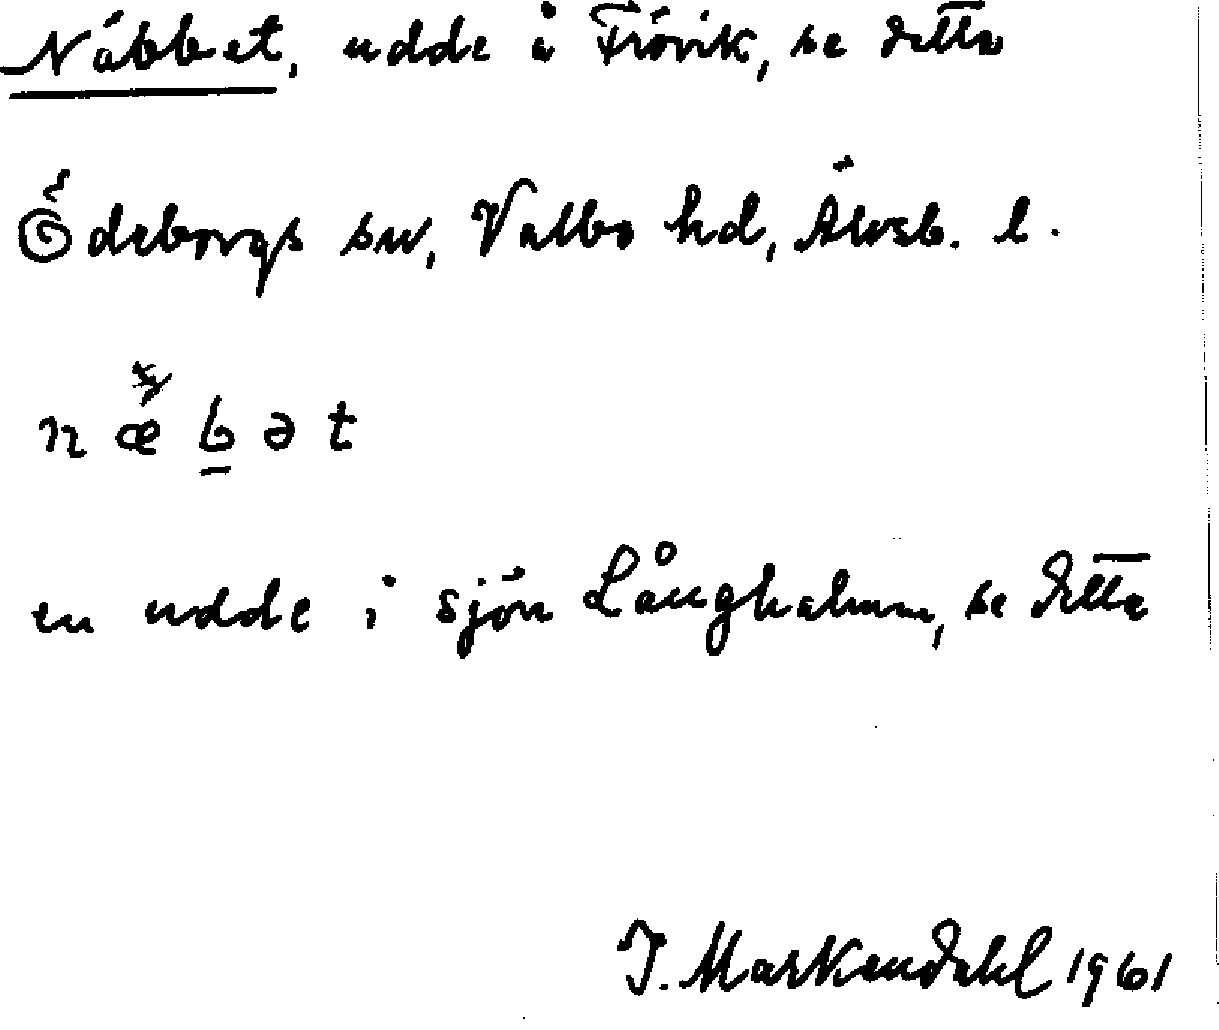 Näbbet, udde i Frövik, se detta
Ödeborgs sn, Valbo hd, Älvsb. l.
n æ b ə t
en udde i sjön Långhalmen, se detta
J. Markendahl 1961